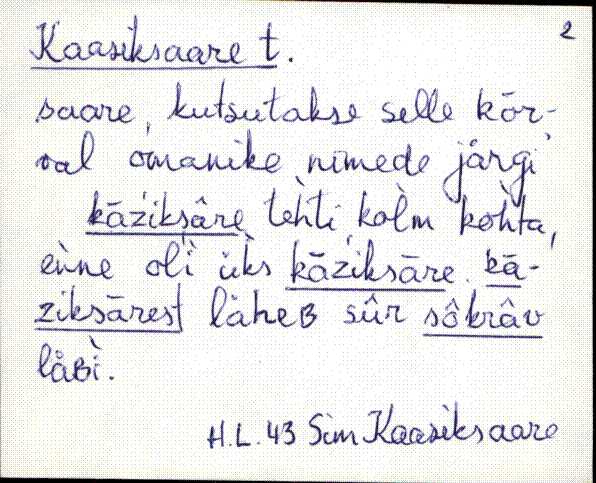 2
Kaasiksaare t.
saare, kutsutakse selle kōr-
val omanike nimede järgi
kāziksâre tehti kolm kohta,
enne oli üks kāziksāre. kā-
ziksārest läheʙ sûr sôkrâv
läʙi.
H.L. 43 Sim Kaasiksaare